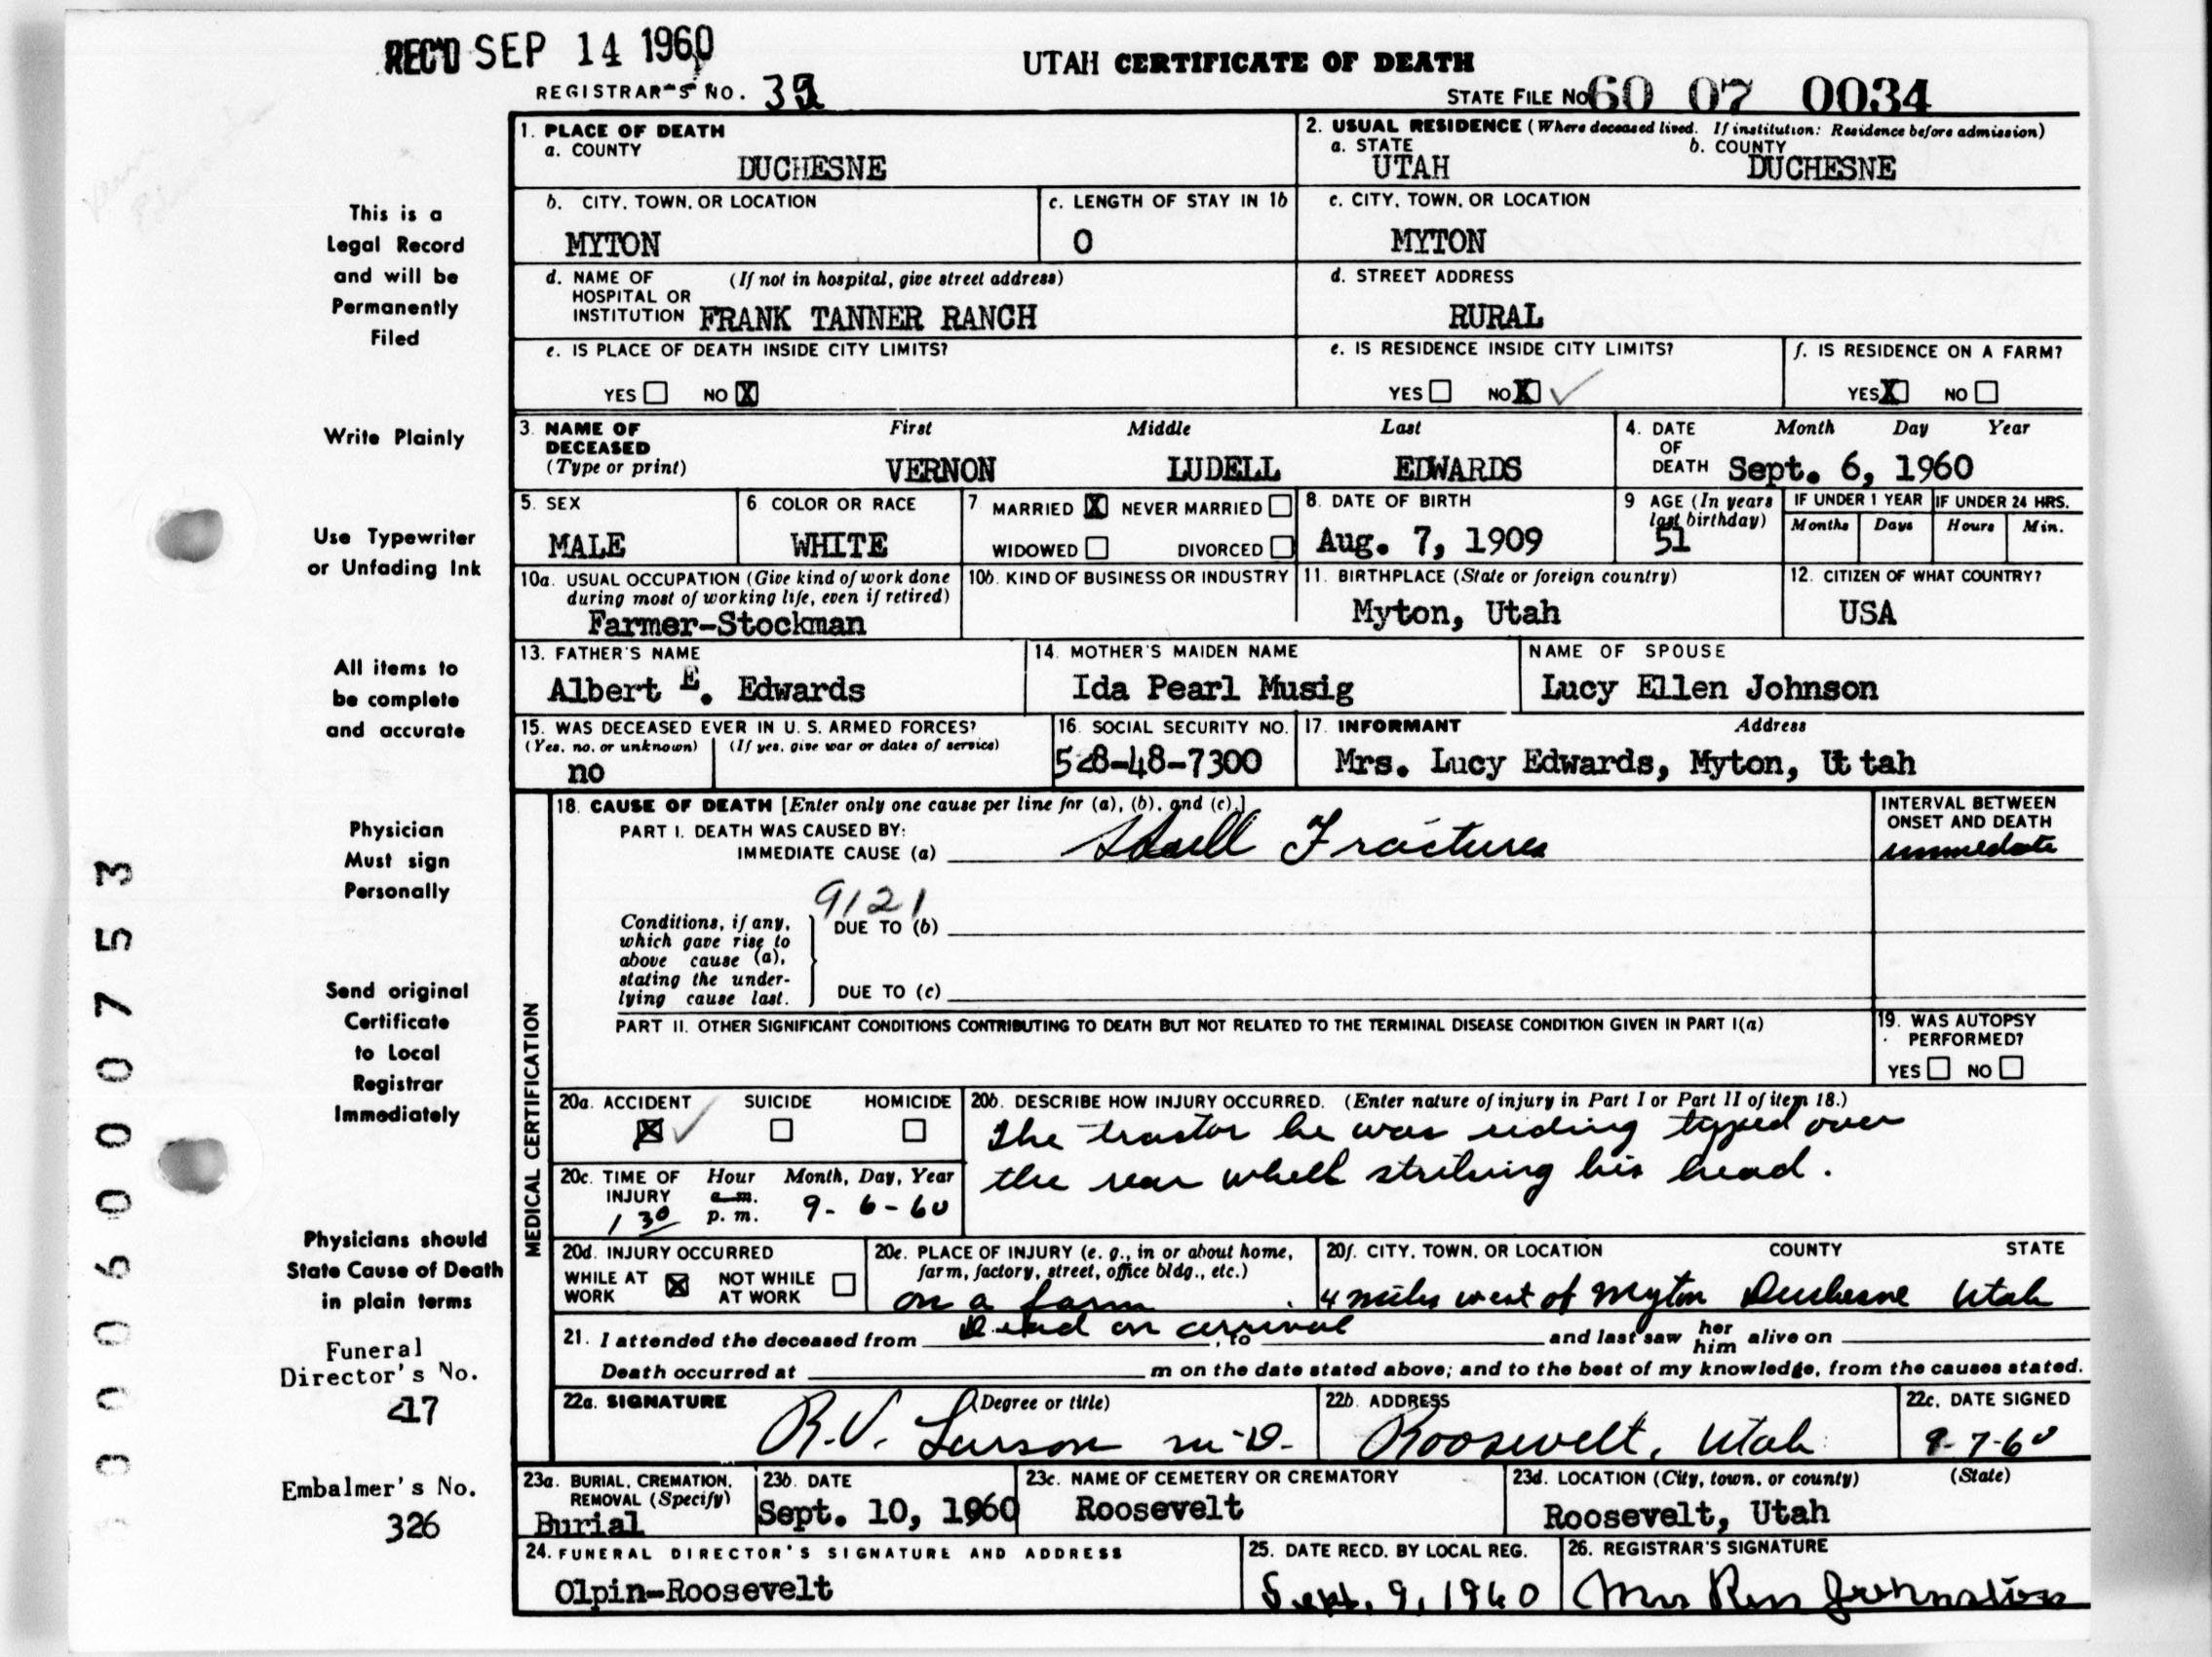 REC'D SEP 14 1960
UTAH CERTIFICATE OF DEATH
REGISTRAR'S NO.
STATE FILE No 60 07 0034
1. PLACE OF DEATH
a. COUNTY
DUCHESNE
2. USUAL RESIDENCE (Where deceased lived. If institution: Residence before admission)
a. STATE
UTAH
b. COUNTY
DUCHESNE
b. CITY, TOWN, OR LOCATION
MYTON
c. LENGTH OF STAY IN 1b
0
c. CITY, TOWN, OR LOCATION
MYTON
d. NAME OF (If not in hospital, give street address)
HOSPITAL OR
INSTITUTION FRANK TANNER RANCH
d. STREET ADDRESS
RURAL
e. IS PLACE OF DEATH INSIDE CITY LIMITS?
YES NO X
e. IS RESIDENCE INSIDE CITY LIMITS?
YES NO X
f. IS RESIDENCE ON A FARM?
YES X NO
3. NAME OF First Middle Last
DECEASED
(Type or print) VERNON LUDELL EDWARDS
4. DATE Month Day Year
OF
DEATH Sept. 6, 1960
5. SEX
MALE
6. COLOR OR RACE
WHITE
7 MARRIED X NEVER MARRIED
WIDOWED DIVORCED
8. DATE OF BIRTH
Aug. 7, 1909
9 AGE (In years
last birthday)
51
IF UNDER 1 YEAR
Months Days
IF UNDER 24 HRS.
Hours Min.
10a. USUAL OCCUPATION (Give kind of work done
during most of working life, even if retired)
Farmer-Stockman
10b. KIND OF BUSINESS OR INDUSTRY
11. BIRTHPLACE (State or foreign country)
Myton, Utah
12. CITIZEN OF WHAT COUNTRY?
USA
13. FATHER'S NAME
Albert E. Edwards
14. MOTHER'S MAIDEN NAME
Ida Pearl Musig
NAME OF SPOUSE
Lucy Ellen Johnson
15. WAS DECEASED EVER IN U. S. ARMED FORCES?
(Yes, no, or unknown) (If yes, give war or dates of service)
no
16. SOCIAL SECURITY NO.
528-48-7300
17. INFORMANT Address
Mrs. Lucy Edwards, Myton, Utah
MEDICAL CERTIFICATION
18. CAUSE OF DEATH [Enter only one cause per line for (a), (b), and (c).]
PART I. DEATH WAS CAUSED BY:
IMMEDIATE CAUSE (a) Skull Fractures
INTERVAL BETWEEN
ONSET AND DEATH
immediate
9121
Conditions, if any,
which gave rise to
above cause (a),
stating the under-
lying cause last.
DUE TO (b)
DUE TO (c)
PART II. OTHER SIGNIFICANT CONDITIONS CONTRIBUTING TO DEATH BUT NOT RELATED TO THE TERMINAL DISEASE CONDITION GIVEN IN PART I(a)
19. WAS AUTOPSY
PERFORMED?
YES NO
20a. ACCIDENT SUICIDE HOMICIDE
X
20b. DESCRIBE HOW INJURY OCCURRED. (Enter nature of injury in Part I or Part II of item 18.)
The tractor he was riding tipped over
the rear whell striking his head.
20c. TIME OF Hour Month, Day, Year
INJURY a.m.
1 30 p. m. 9-6-60
20d. INJURY OCCURRED
WHILE AT WORK X NOT WHILE AT WORK
20e. PLACE OF INJURY (e. g., in or about home,
farm, factory, street, office bldg., etc.)
on a farm
20f. CITY, TOWN, OR LOCATION COUNTY STATE
4 miles west of Myton Duchesne Utah
21. I attended the deceased from Dead on arrival, to and last saw her him alive on
Death occurred at m on the date stated above; and to the best of my knowledge, from the causes stated.
22a. SIGNATURE (Degree or title)
R.V. Larson M.D.
22b. ADDRESS
Roosevelt, Utah
22c. DATE SIGNED
9-7-60
23a. BURIAL, CREMATION,
REMOVAL (Specify)
Burial
23b. DATE
Sept. 10, 1960
23c. NAME OF CEMETERY OR CREMATORY
Roosevelt
23d. LOCATION (City, town, or county) (State)
Roosevelt, Utah
24. FUNERAL DIRECTOR'S SIGNATURE AND ADDRESS
Olpin-Roosevelt
25. DATE RECD. BY LOCAL REG.
Sept. 9, 1960
26. REGISTRAR'S SIGNATURE
This is a
Legal Record
and will be
Permanently
Filed
Write Plainly
Use Typewriter
or Unfading Ink
All items to
be complete
and accurate
Physician
Must sign
Personally
Send original
Certificate
to Local
Registrar
Immediately
Physicians should
State Cause of Death
in plain terms
Funeral
Director's No.
417
Embalmer's No.
326